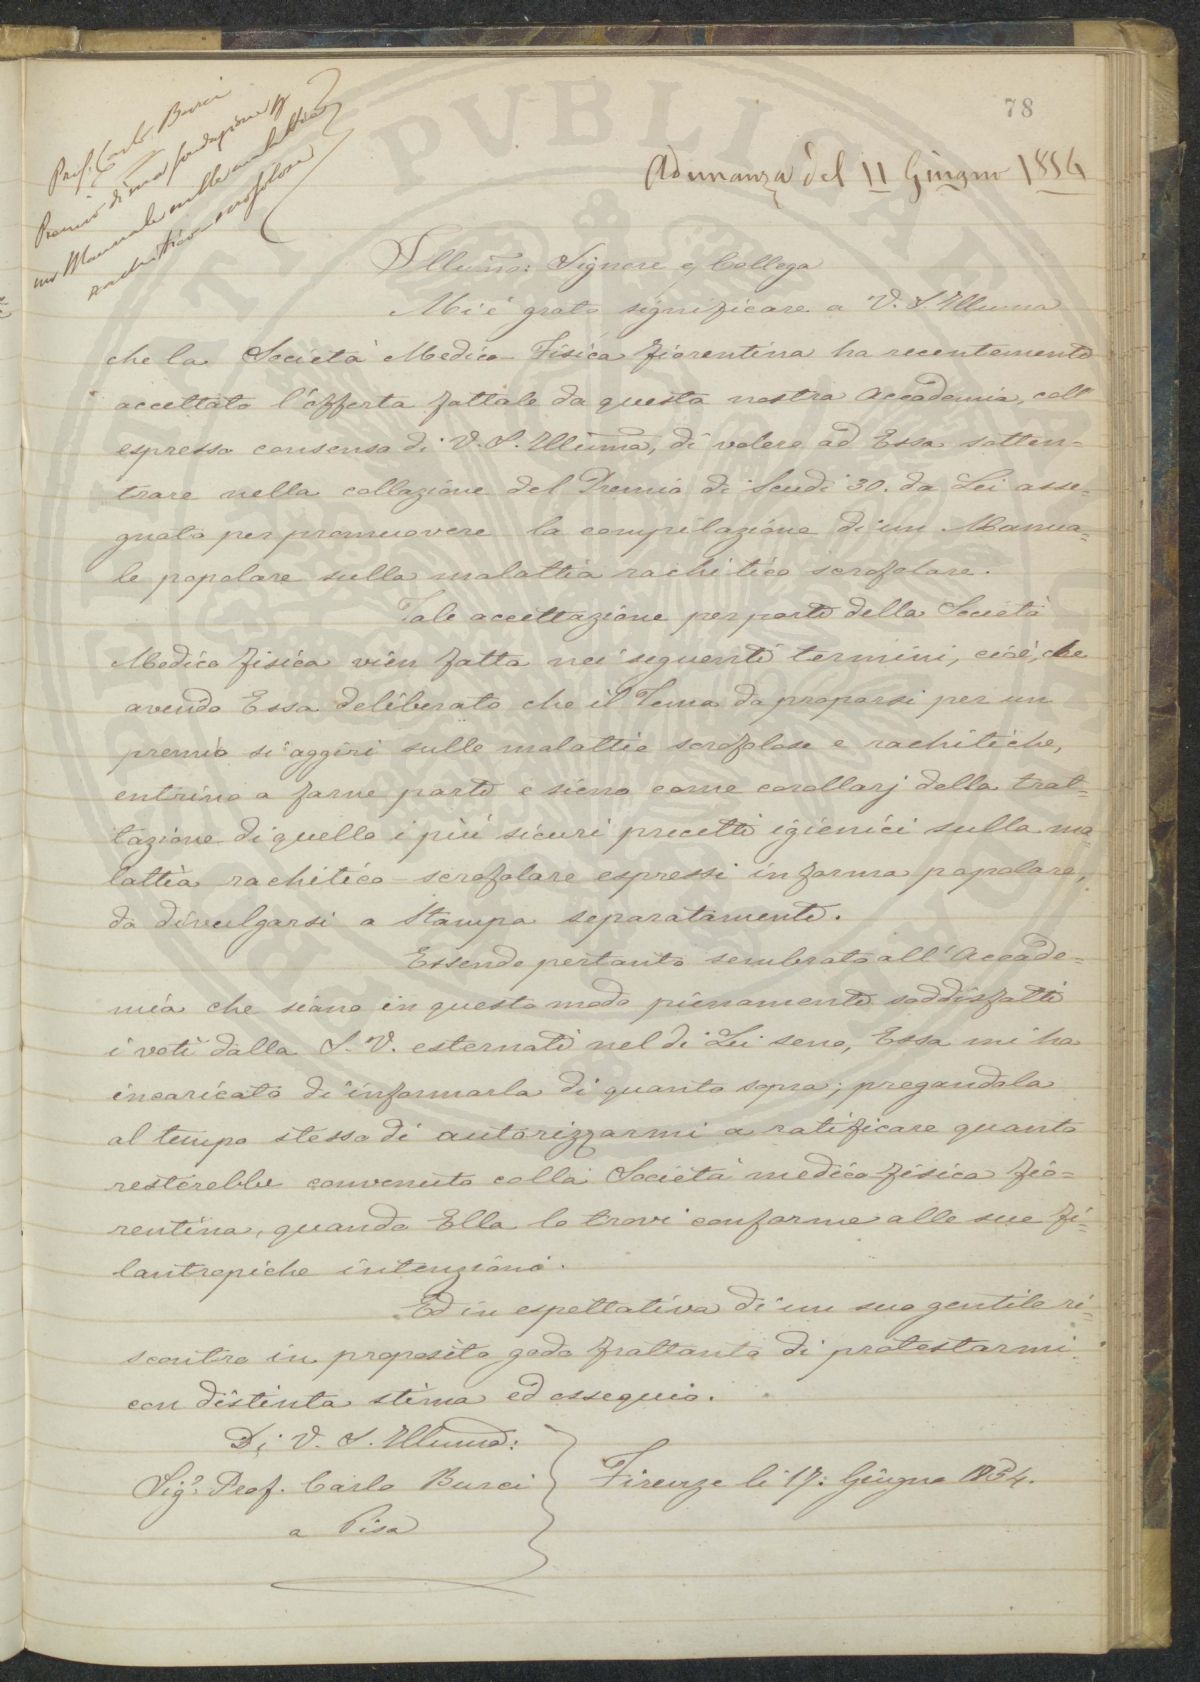 78
Prof. Carlo Burci
Premio di sua fondazione p
un Manuale sulle malattie
rachitico-scrofolose
Adunanza del 11 Giugno 1854
Illumo: Signore e Collega
Mi è grato significare a V. S. Illuma
che la Società Medico-Fisica fiorentina ha recentemente
accettato l'offerta fattale da questa nostra Accademia, coll'
espresso consenso di V. S. Illuma, di volere ad Essa satten=
trare nella collazione del Premio di Scudi 30. da Lei asse=
gnato per promuovere la compilazione di un Manua=
le popolare sulla malattia rachitico scrofolare.
Tale accettazione per parte della Società
Medico fisica vien fatta nei seguenti termini, cioè, che
avendo Essa deliberato che il Tema da proporsi per un
premio si aggiri sulle malattie scrofolose e rachitiche,
entrino a farne parte e sieno come corollarj della trat=
tazione di quello i più sicuri precetti igienici sulla ma=
lattia rachitico-scrofolare espressi in forma popolare,
da divulgarsi a Stampa separatamente.
Essendo pertanto sembrato all'Accade=
mia che siano in questo modo pienamente soddisfatti
i voti dalla S. V. esternati nel di Lei seno, Essa mi ha
incaricato di informarla di quanto sopra; pregandola
al tempo stesso di autorizzarmi a ratificare quanto
resterebbe convenuto colla Società medico fisica fio=
rentina, quando Ella lo trovi conforme alle sue fi=
lantropiche intenzioni.
Ed in espettativa di un suo gentile ri=
scontro in proposito godo frattanto di protestarmi
con distinta stima ed ossequio.
Di V. S. Illuma:
Sigr Prof. Carlo Burci
a Pisa
Firenze li 17: Giugno 1854.
PVBLICAE